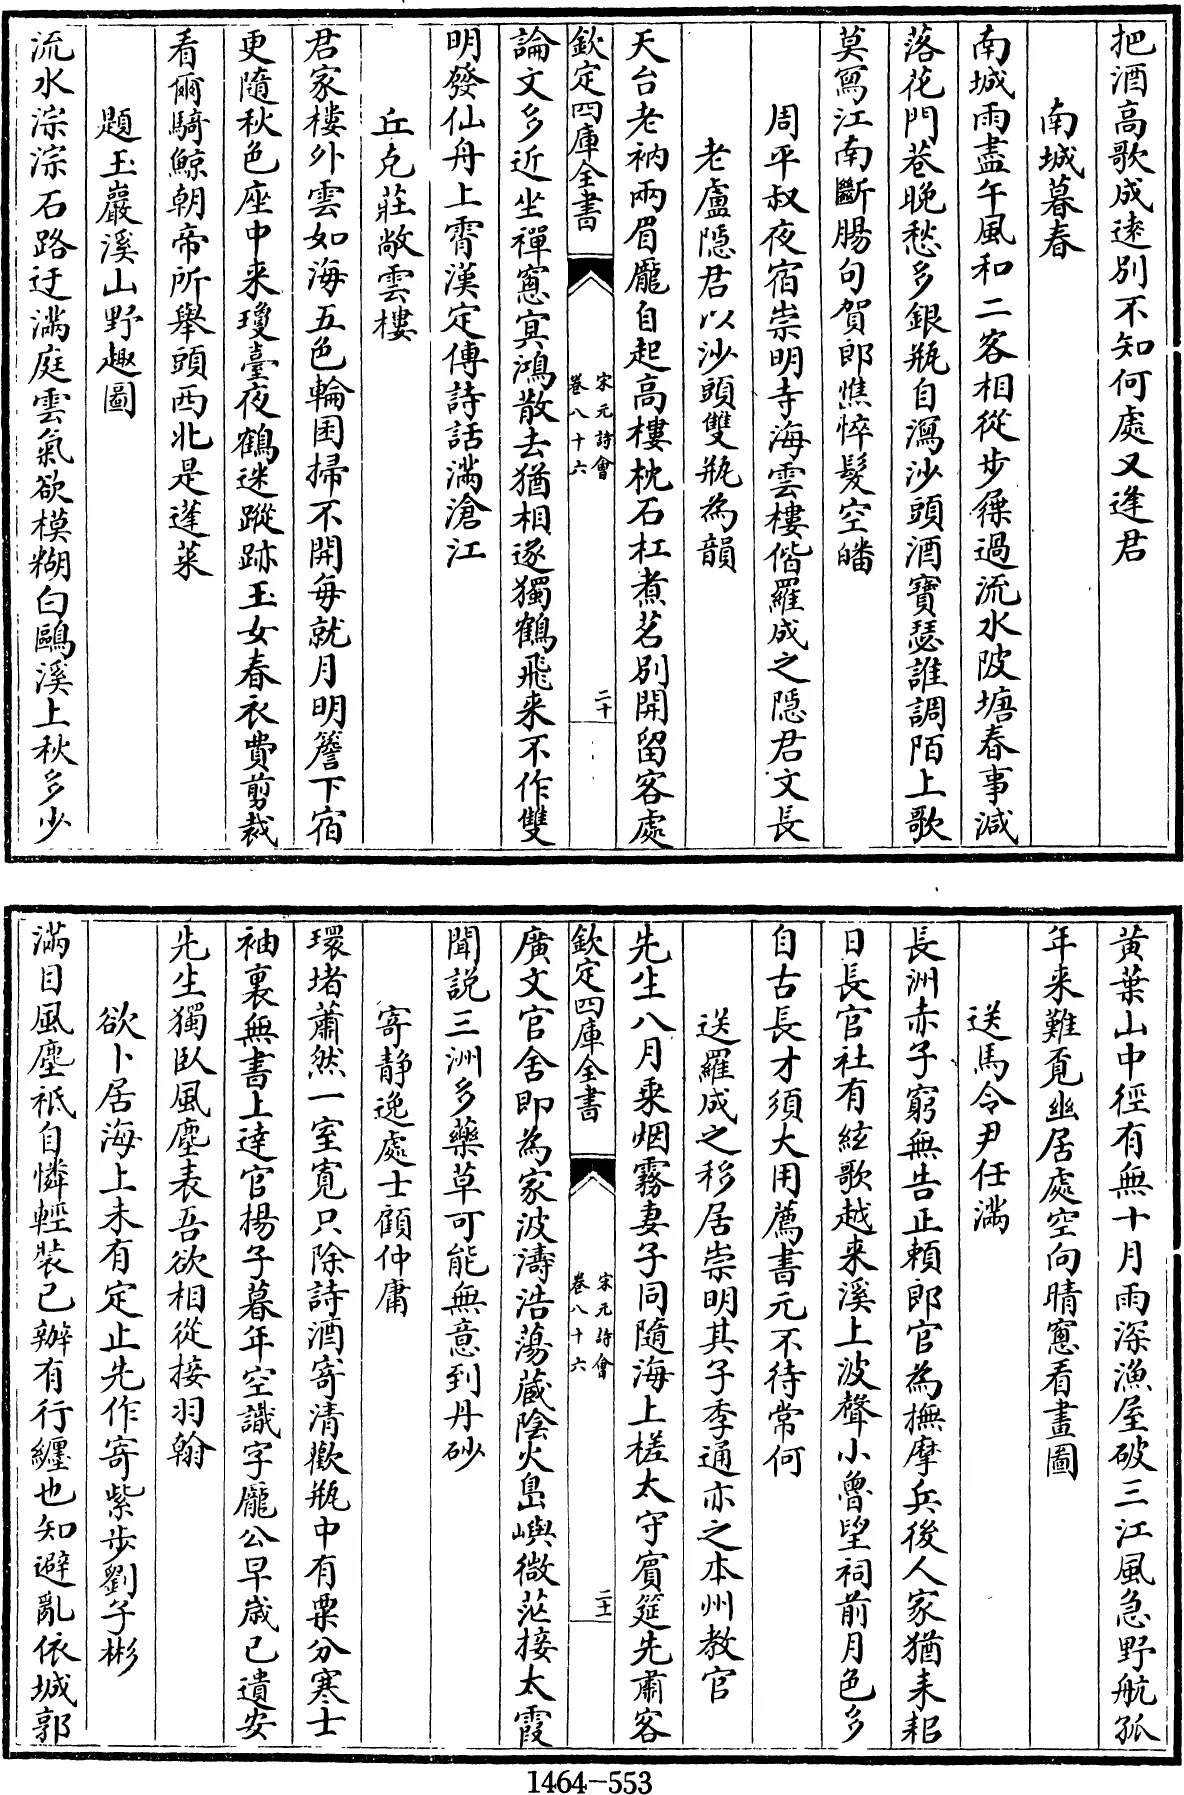 把酒高歌成逺别不知何處又逢君
南城暮春
南城雨盡午風和二客相從步屧過流水陂塘春事減
落花門巷晚愁多銀瓶自瀉沙頭酒寳瑟誰調陌上歌
莫寫江南斷腸句賀郎憔悴髮空皤
周平叔夜宿崇明寺海雲樓偕羅成之隠君文長
老盧隠君以沙頭雙瓶為韻
天台老衲兩眉龎自起高樓枕石杠煮茗别開留客處
欽定四庫全書
宋元詩會
卷八十六
二十
論文多近坐禪窻㝠鴻散去猶相逐獨鶴飛来不作雙
明發仙舟上霄漢定傳詩話滿滄江
丘克莊敞雲樓
君家樓外雲如海五色輪囷掃不開每就月明簷下宿
更隨秋色座中来瓊臺夜鶴迷蹤跡玉女春衣費剪裁
看爾騎鯨朝帝所舉頭西北是蓬萊
題玉巖溪山野趣圖
流水淙淙石路迂滿庭雲氣欲模糊白鷗溪上秋多少
黄葉山中徑有無十月雨深漁屋破三江風急野航孤
年来難覔幽居處空向晴窻看畫圖
送馬令尹任滿
長洲赤子窮無告正頼郎官為撫摩兵後人家猶耒耜
日長官社有絃歌越来溪上波聲小魯望祠前月色多
自古長才須大用薦書元不待常何
送羅成之移居崇明其子季通亦之本州教官
先生八月乘烟霧妻子同隨海上槎太守賔筵先肅客
欽定四庫全書
宋元詩會
卷八十六
二十一
廣文官舍即為家波濤浩蕩蔵陰火島嶼微茫接太霞
聞説三洲多藥草可能無意到丹砂
寄靜逸處士顧仲庸
環堵蕭然一室寛只除詩酒寄清歡瓶中有粟分寒士
袖裏無書上達官揚子暮年空識字龎公早歲已遺安
先生獨臥風塵表吾欲相從接羽翰
欲卜居海上未有定止先作寄紫步劉子彬
滿目風塵祗自憐輕裝已辦有行纒也知避亂依城郭
1464-553